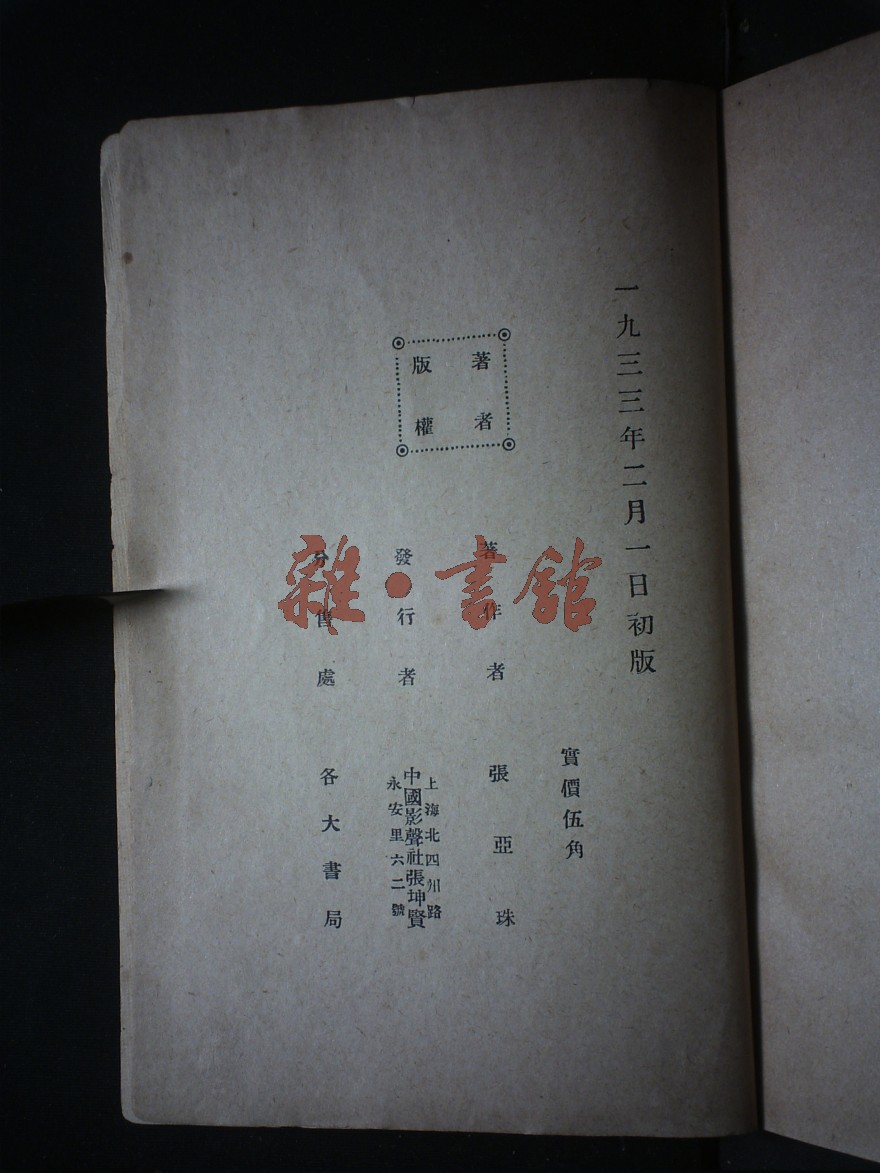 一九三三年二月一日初版
實價伍角
著者
版權
著作者 張亞珠
發行者
上海北四川路
中國影聲社張坤賢
永安里六二號
分售處 各大書局
雜·書館